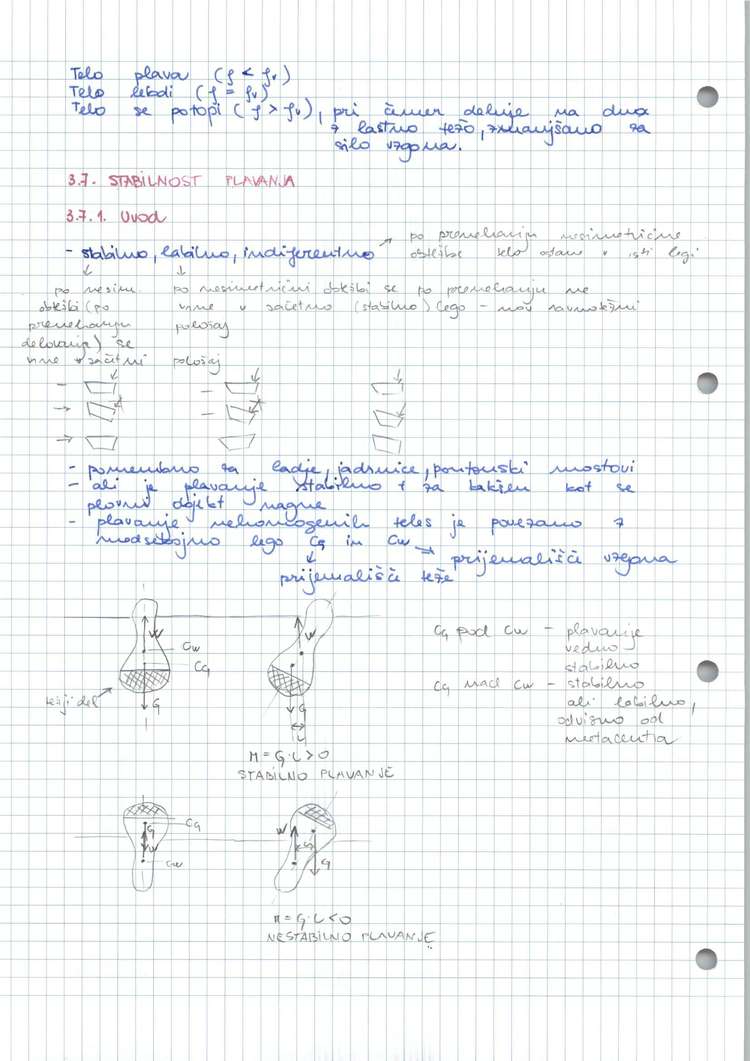 Telo plava (ρ < ρv)
Telo lebdi (ρ = ρv)
Telo se potopi (ρ > ρv), pri čimer deluje na dno
z lastno težo, zmanjšano za
silo vzgona.
3.7. STABILNOST PLAVANJA
3.7.1. Uvod
- stabilno, labilno, indiferentno
po prenehanju nesimetrične
obtežbe telo ostane v isti legi
po nesim.
obtežbi (po
prenehanju
delovanja) se
vrne v začetni položaj
po nesimetrični obtežbi se po prenehanju ne
vrne v začetno (stabilno) lego – nov ravnotežni
položaj
- pomembno za ladje, jadrnice, pontonski mostovi
- ali je plavanje stabilno + za kakšen kot se
plovni objekt nagne
- plavanje nehomogenih teles je povezano z
medsebojno lego CG in CW → prijemališče vzgona
prijemališče teže
W
CW
CG
težji del
G
W
G
L
M = G·L > 0
STABILNO PLAVANJE
CG pod CW – plavanje
vedno
stabilno
CG nad CW – stabilno
ali labilno,
odvisno od
metacentra
CG
G
W
CW
W
G
M = G·L < 0
NESTABILNO PLAVANJE